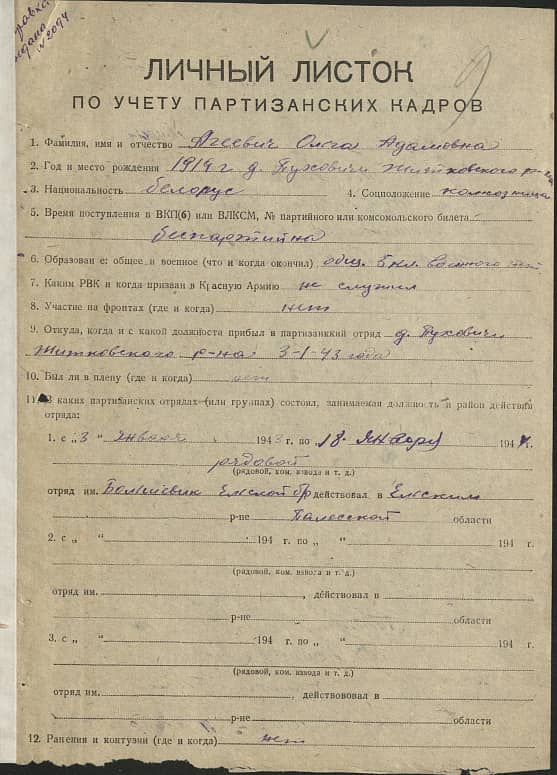 Справка
выдана
№ 2094
ЛИЧНЫЙ ЛИСТОК
ПО УЧЕТУ ПАРТИЗАНСКИХ КАДРОВ
9
1. Фамилия, имя и отчество Агеевич Ольга Адамовна
2. Год и место рождения 1919 г д. Пуховичи Житковского р-на
3. Национальность белорус 4. Соцположение колхозница
5. Время поступления в ВКП(б) или ВЛКСМ, № партийного или комсомольского билета
беспартийна
6. Образование: общее и военное (что и когда окончил) общ. 5 кл. военного нет
7. Каким РВК и когда призван в Красную Армию не служил
8. Участие на фронтах (где и когда) нет
9. Откуда, когда и с какой должности прибыл в партизанкий отряд д. Пуховичи
Житковского р-на 3-1-43 года
10. Был ли в плену (где и когда) нет
11. В каких партизанских отрядах (или группах) состоял, занимаемая должность и район действия
отряда:
1. с „3“ января 1943 г. по „18“ января 1944 г.
рядовой
(рядовой, ком. взвода и т. д.)
отряд им. Большевик Ельской бр действовал в Ельским
р-не Палесской области
2. с „ “ 194 г. по „ “ 194 г.
(рядовой, ком. взвода и т. д.)
отряд им. , действовал в
р-не области
3. с „ “ 194 г. по „ “ 194 г.
(рядовой, ком. взвода и т. д.)
отряд им. , действововал в
р-не области
12. Ранения и контузии (где и когда) нет